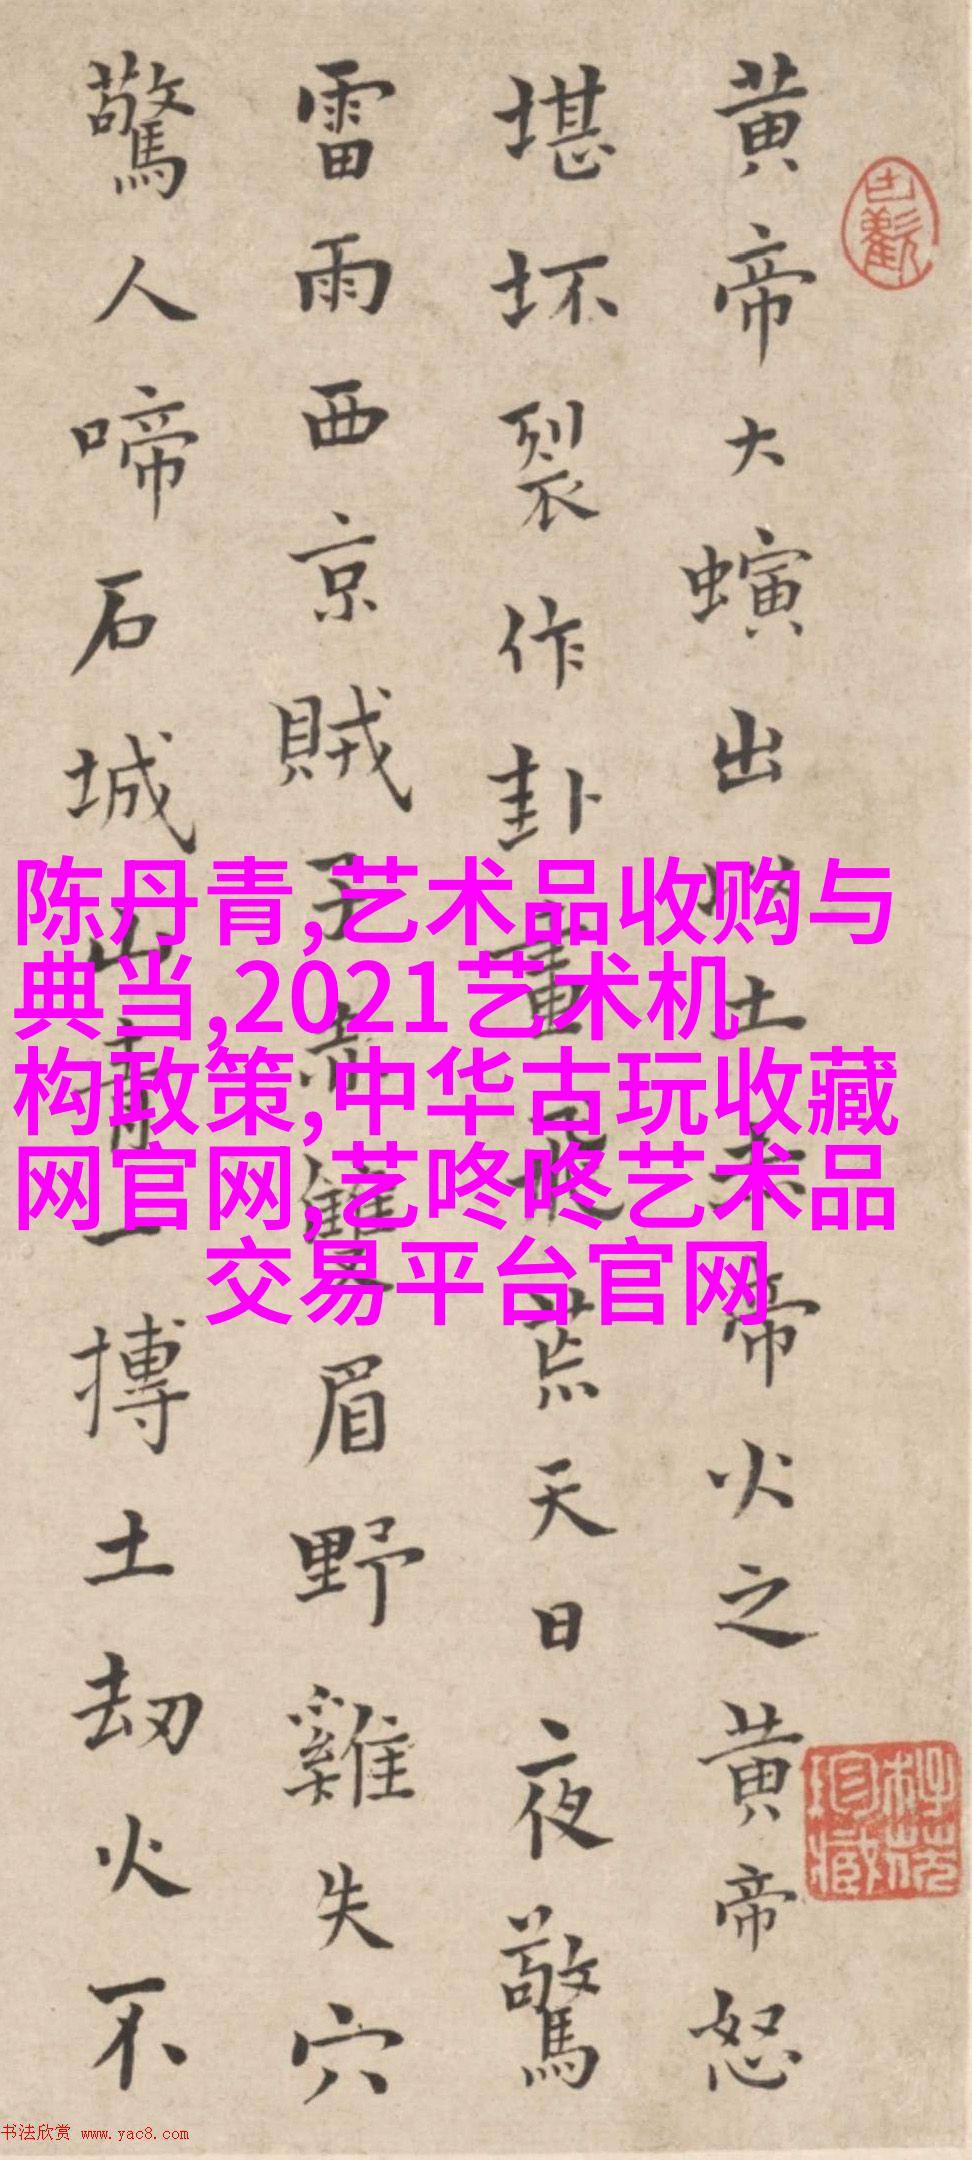 黄帝大螾出土帝火之黄帝怒
堪坏裂作卦重飛荒天日夜驚
雷雨西京賊子雙眉野雞失穴
驚人啼石城山青一摶土刼火不
陈丹青,艺术品收购与
典当,2021艺术机
构政策,中华古玩收藏
网官网,艺咚咚艺术品
交易平台官网
书法欣赏 www.yac8.com